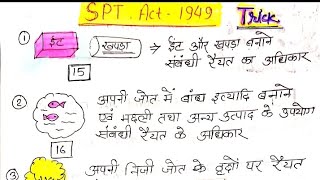 SPT. Act - 1949
Trick
① ईंट खपड़ा → ईंट और खपड़ा बनाने
संबंधी रैयत का अधिकार
15
② अपनी जोत में बांध इत्यादि बनाने
एवं मछली तथा अन्य उत्पाद के उपयोग
संबंधी रैयत के अधिकार
16
③ अपनी निजी जोत के वृक्षों पर रैयत